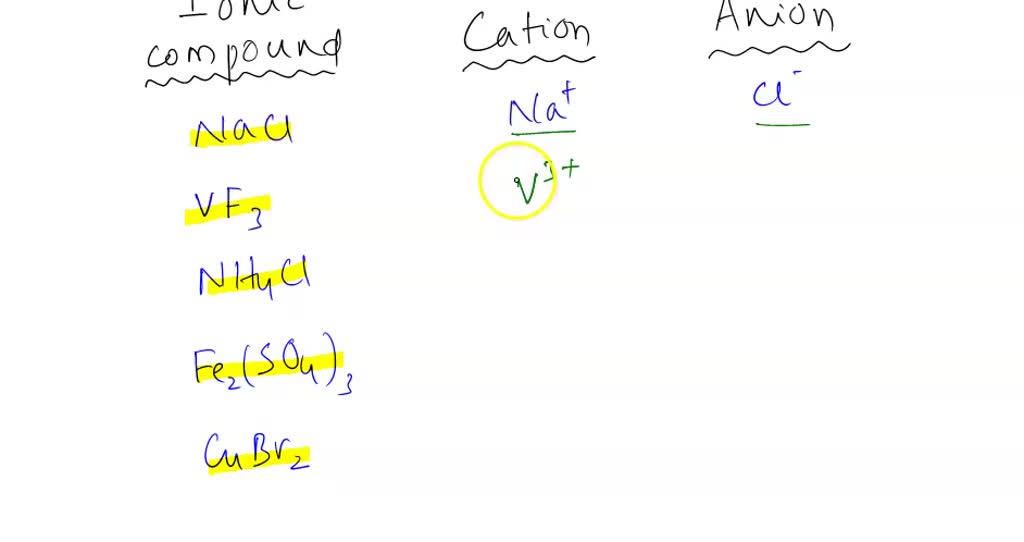 Ionic compound Cation Anion
NaCl Na⁺ Cl⁻
VF₃ V³⁺
NH₄Cl
Fe₂(SO₄)₃
CuBr₂